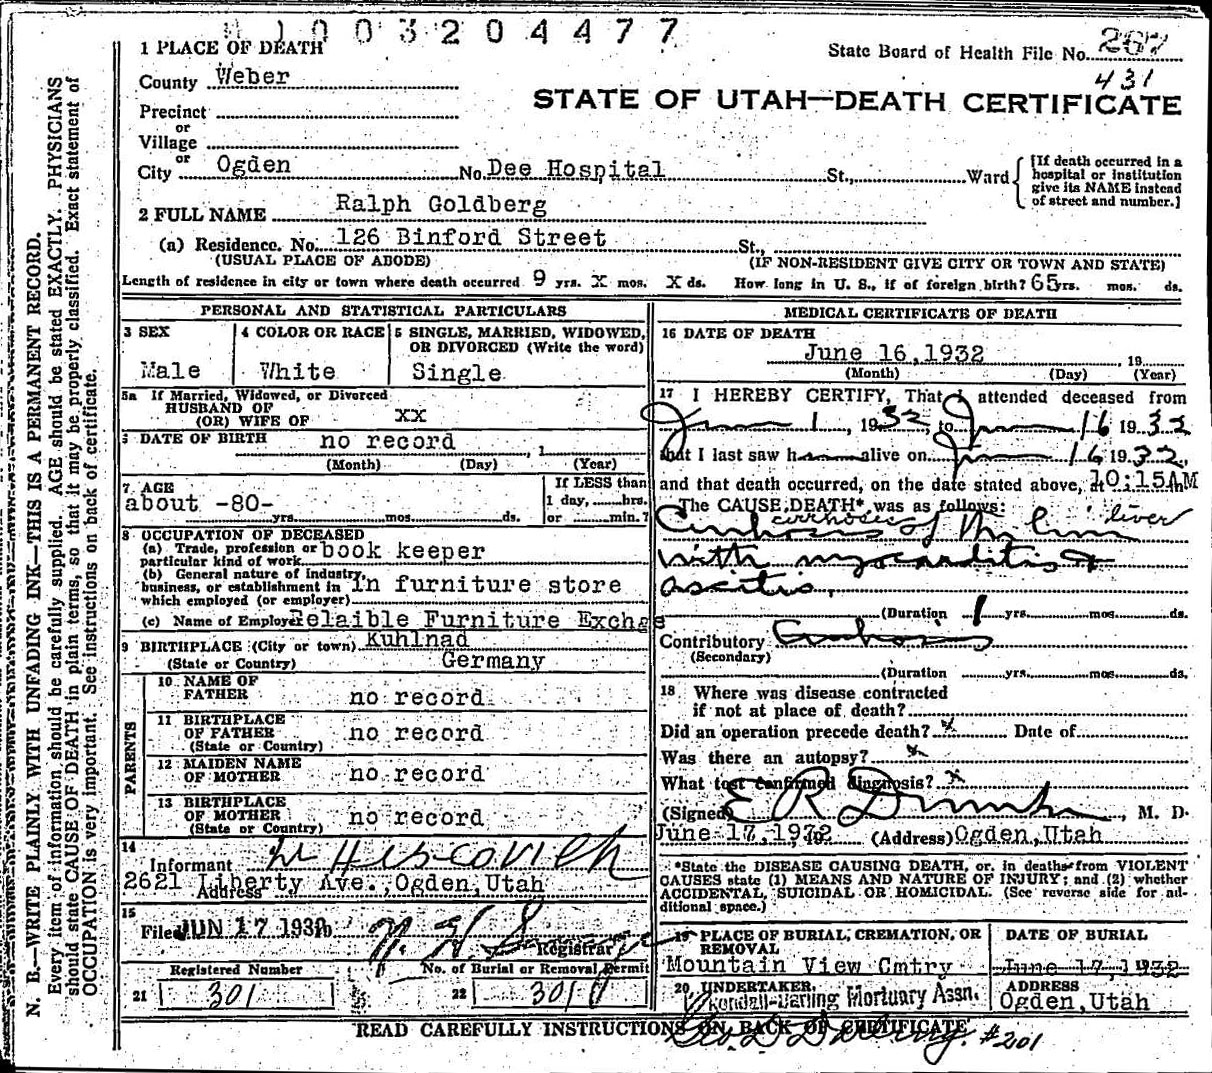 1003204477
State Board of Health File No. 267
431
1 PLACE OF DEATH
County Weber
STATE OF UTAH—DEATH CERTIFICATE
Precinct
or
Village
or
City Ogden No. Dee Hospital St., Ward
[If death occurred in a hospital or institution give its NAME instead of street and number.]
2 FULL NAME Ralph Goldberg
(a) Residence. No. 126 Binford Street St.,
(USUAL PLACE OF ABODE) (IF NON-RESIDENT GIVE CITY OR TOWN AND STATE)
Length of residence in city or town where death occurred 9 yrs. X mos. X ds. How long in U. S., if of foreign birth? 65 yrs. mos. ds.
PERSONAL AND STATISTICAL PARTICULARS
3 SEX
Male
4 COLOR OR RACE
White
5 SINGLE, MARRIED, WIDOWED, OR DIVORCED (Write the word)
Single
5a If Married, Widowed, or Divorced
HUSBAND OF
(OR) WIFE OF XX
6 DATE OF BIRTH no record , 1
(Month) (Day) (Year)
7 AGE
about -80-
yrs. mos. ds.
If LESS than
1 day, hrs.
or min.?
8 OCCUPATION OF DECEASED
(a) Trade, profession or particular kind of work book keeper
(b) General nature of industry, business, or establishment in which employed (or employer) In furniture store
(c) Name of Employer Relaible Furniture Exchge
9 BIRTHPLACE (City or town) Kuhlnad
(State or Country) Germany
PARENTS
10 NAME OF FATHER no record
11 BIRTHPLACE OF FATHER (State or Country) no record
12 MAIDEN NAME OF MOTHER no record
13 BIRTHPLACE OF MOTHER (State or Country) no record
14
Informant
2621 Liberty Ave., Ogden, Utah
Address
15
Filed JUN 17 1932
Registrar
Registered Number
21 301
No. of Burial or Removal Permit
22 301
MEDICAL CERTIFICATE OF DEATH
16 DATE OF DEATH
June 16, 1932 19
(Month) (Day) (Year)
17 I HEREBY CERTIFY, That I attended deceased from
June 1, 1932, to June 16 1932
that I last saw h alive on June 16 1932,
and that death occurred, on the date stated above, at 10:15AM
The CAUSE DEATH* was as follows:
Cirrhosis cirrhosis of the liver liver
with myocarditis &
ascitis.
(Duration 1 yrs. mos. ds.
Contributory Cirrhosis
(Secondary)
(Duration yrs. mos. ds.
18 Where was disease contracted
if not at place of death?
Did an operation precede death? x Date of
Was there an autopsy? x
What test confirmed diagnosis? x
(Signed) E R , M. D.
June 17, 1932 (Address) Ogden, Utah
*State the DISEASE CAUSING DEATH, or, in deaths from VIOLENT
CAUSES state (1) MEANS AND NATURE OF INJURY; and (2) whether
ACCIDENTAL, SUICIDAL OR HOMICIDAL. (See reverse side for ad-
ditional space.)
19 PLACE OF BURIAL, CREMATION, OR REMOVAL
Mountain View Cmtry
DATE OF BURIAL
June 17, 1932
20 UNDERTAKER
Kendall-Darling Mortuary Assn.
ADDRESS
Ogden, Utah
READ CAREFULLY INSTRUCTIONS ON BACK OF CERTIFICATE
Geo. D Darling. #201
N. B.—WRITE PLAINLY WITH UNFADING INK—THIS IS A PERMANENT RECORD.
Every item of information should be carefully supplied. AGE should be stated EXACTLY. PHYSICIANS
should state CAUSE OF DEATH in plain terms, so that it may be properly classified. Exact statement of
OCCUPATION is very important. See instructions on back of certificate.